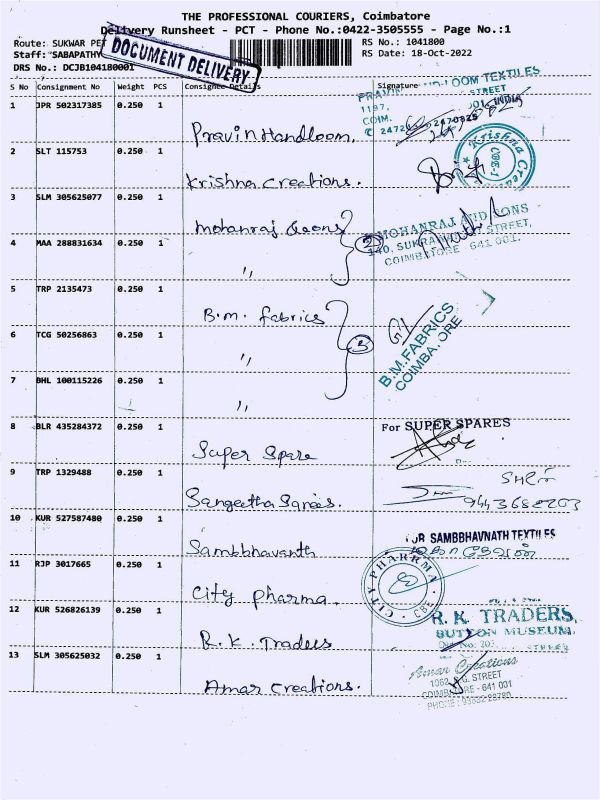 THE PROFESSIONAL COURIERS, Coimbatore
Delivery Runsheet - PCT - Phone No.:0422-3505555 - Page No.:1
Route: SUKWAR PET
RS No.: 1041800
Staff: SABAPATHY
RS Date: 18-Oct-2022
DRS No.: DCJB104180001
DOCUMENT DELIVERY
S No Consignment No Weight PCS Consignee Details Signature
1 JPR 502317385 0.250 1 Pravin Handloom.
PRAVIN LOOM TEXTILES
STREET
1197,
COIM. INDIA
2 SLT 115753 0.250 1 Krishna Creations.
Krishna Crea
CBE-1
3 SLM 305625077 0.250 1 Mohanraj &sons
2
MOHANRAJ AND SONS
140, SUKRAWAR STREET,
COIMBATORE - 641 001.
4 MAA 288831634 0.250 1 "
5 TRP 2135473 0.250 1 B.M. fabrics
3
B.M.FABRICS
COIMBA ORE
6 TCG 50256863 0.250 1 "
7 BHL 100115226 0.250 1 "
8 BLR 435284372 0.250 1 Super Spare
For SUPER SPARES
9 TRP 1329488 0.250 1 Sangeetha Sarees.
10 KUR 527587480 0.250 1 Sambbhavanth
SAMBBHAVNATH TEXTILES
11 RJP 3017665 0.250 1 City pharma.
CITY PHARRMA
CBE
12 KUR 526826139 0.250 1 R.K. Traders
R. K. TRADERS,
BUTTON MUSEUM,
No: 203
STREET
13 SLM 305625032 0.250 1 Amar Creations.
Amar Creations
1062 STREET
COIMBATORE - 641 001
PHONE :